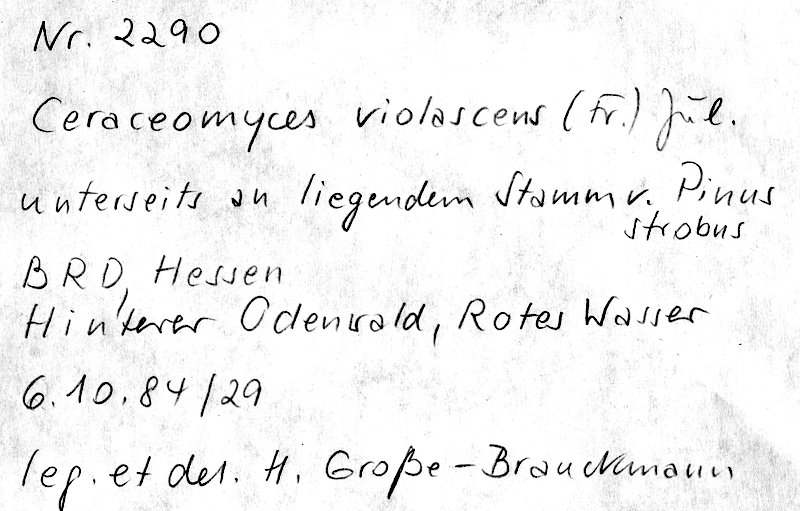 Nr. 2290
Ceraceomyces violascens (Fr.) Jül.
unterseits an liegendem Stamm v. Pinus
strobus
BRD, Hessen
Hinterer Odenwald, Rotes Wasser
6.10.84/29
leg. et det. H. Große-Brauckmann